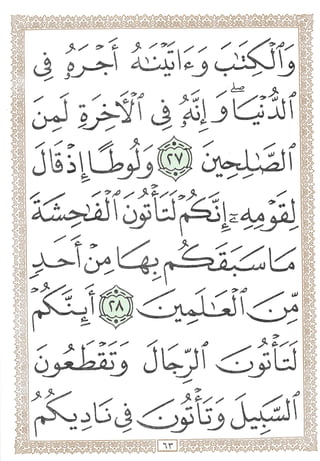 وَٱلْكِتَٰبَ وَءَاتَيْنَٰهُ أَجْرَهُۥ فِى
ٱلدُّنْيَا ۖ وَإِنَّهُۥ فِى ٱلْأَخِرَةِ لَمِنَ
ٱلصَّٰلِحِينَ ٢٧ وَلُوطًا إِذْ قَالَ
لِقَوْمِهِۦٓ إِنَّكُمْ لَتَأْتُونَ ٱلْفَٰحِشَةَ
مَا سَبَقَكُم بِهَا مِنْ أَحَدٍ
مِّنَ ٱلْعَٰلَمِينَ ٢٨ أَئِنَّكُمْ
لَتَأْتُونَ ٱلرِّجَالَ وَتَقْطَعُونَ
ٱلسَّبِيلَ وَتَأْتُونَ فِى نَادِيكُمُ
٦٣